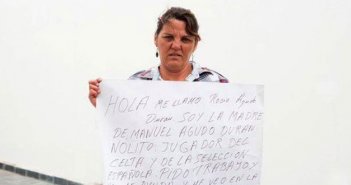 HOLA ME LLAMO Rosa Agudo
Duran. SOY LA MADRE
DE MANUEL AGUDO DURAN
NOLITO JUGADOR DEL
CELTA Y DE LA SELECCION
ESPAÑOLA. PIDO TRABAJO Y
VEO EN LA